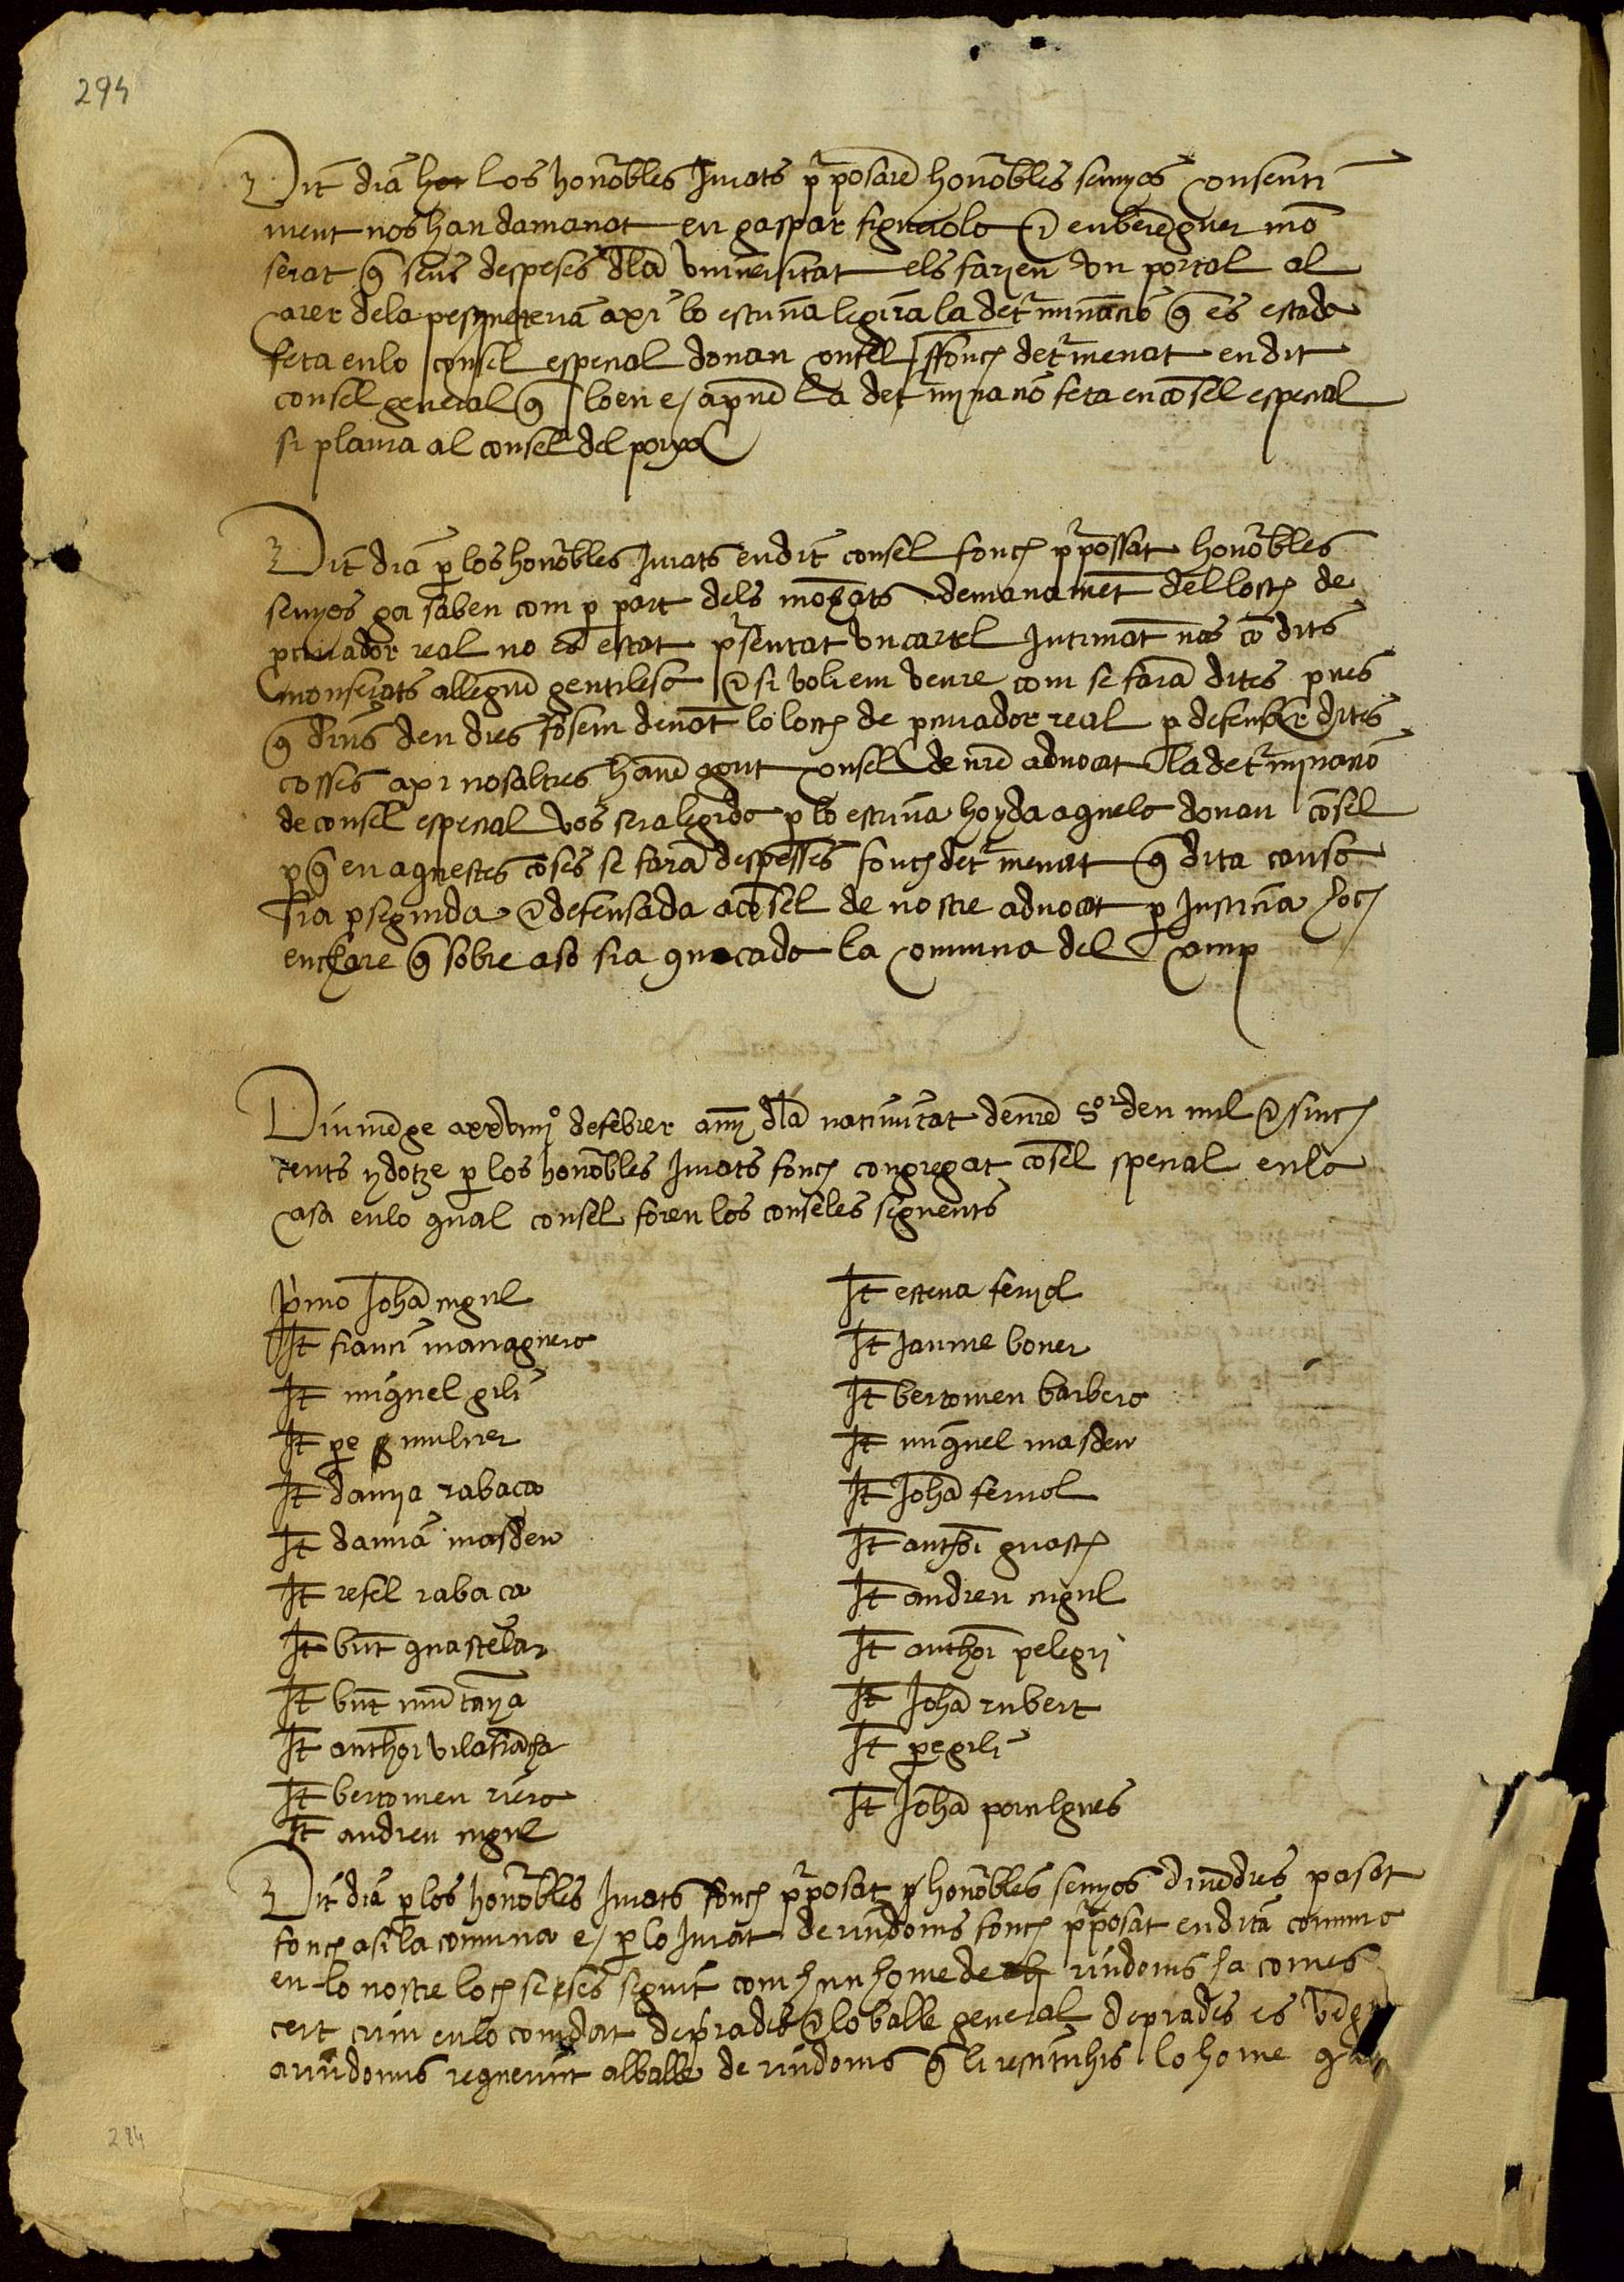 294
Dit dia los honōbles Jurats pposarē honōbles senyos consenti
ment nos han damanat en gaspar figuerola e en berēguer mō
serat q̄ sens despeses dla vniuersitat els farien vn portal al
carer de la pesquateria axi lo escriua legira la det̄minacio q̄ es estada
feta en lo consel especial donau consel ffonch det̄menat en dit
consel general q̄ loen e aproue la det̄minacio feta en cōsel especial
si plaura al consel del
Dit dia p los honōbles Jurats en dit consel fonch pposat honōbles
senyos ja saben com p part dels mōsarats demanamēt del loch de
pcurador real no es estat psentat vn cartel Intimāt nos cō dits
monserats allegauē gentilesa e si voliem veure com se farā dites proues
q̄ dins deu dies fosem dauāt lo loch de pcurador real p defensar dites
cosses axi nosaltres hauē agut consel de nrē aduocat la det̄minacio
de consel especial vos sera legida p lo escriua hoyda aquela donau cōsel
p q̄ en aquestes coses se farā despesses fonch det̄menat q̄ dita causa
sia pseguida e defensada a cōsel de nostre aduocat p Justicia
enchare q̄ sobre aso sia quocada la comuna del camp
Diumēge a xxviiij° de febrer any dla natiuitat de nrē Sor den mil e sinch
cents y dotze p los honōbles Jurats fonch congregat cōsel special en la
casa en lo qual consel foren los conseles siguents
pmo Johā mgul
It franci managuera
It miquel gili
It pe muluer
It damia rabaca
It damia masdeu
It rafel rabaca
It bnt guastelar
It bnt mūtanya
It anthoi vilafrācha
It bertomeu riera
It andreu mgul
It esteua feriol
It Jaume boner
It bertomeu barbera
It miquel masdeu
It Johā feriol
It anthoi guasch
It andreu mgul
It anthoi pelegri
It Johā rubert
It pe gili
It Johā porulgues
Dit dia p los honōbles Jurats fonch pposat honōbles senyos diuēdres pasat
fonch asi la comuna e p lo Jurat de riudoms fonch pposat en dita comuna
en lo nostre loch si es seguit com hun home de riudoms ha comes
cert crim en lo comdat de prades e lo balle general de prades es
a riudoms requerint al balle de riudoms q̄ li restituhis lo home
284